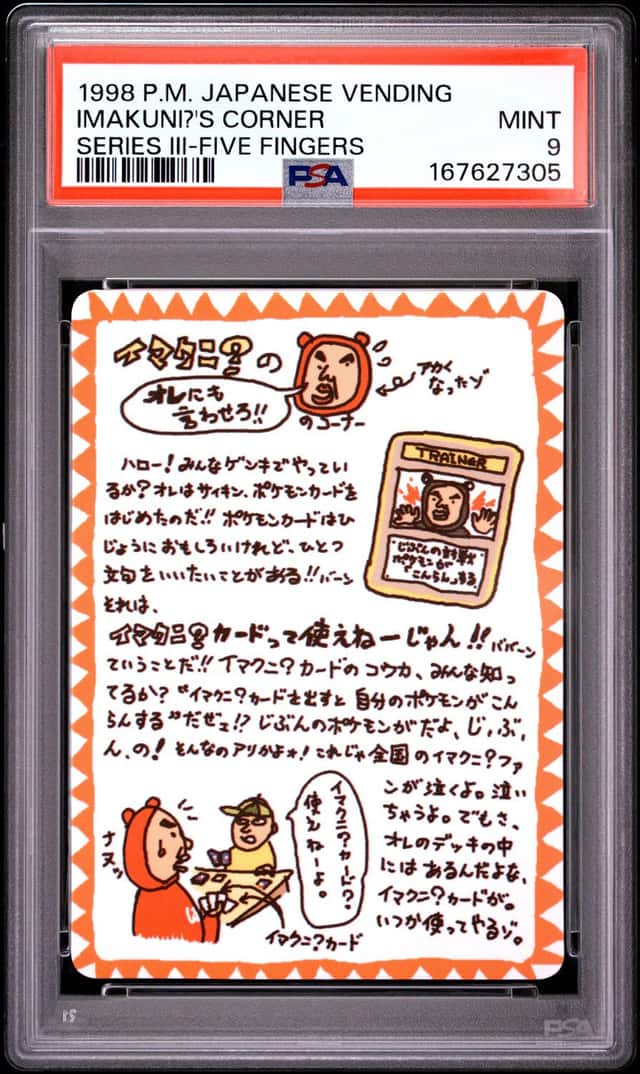 1998 P.M. JAPANESE VENDING
IMAKUNI?'S CORNER MINT
SERIES III-FIVE FINGERS 9
PSA 167627305
イマクニ?の
オレにも
言わせろ!!
のコーナー
アカく
なったゾ
ハロー!みんなゲンキでやってい
るか?オレはサイキン、ポケモンカードを
はじめたのだ!!ポケモンカードはひ
じょうにおもしろいけれど、ひとつ
文句をいいたいことがある!!バーン
それは、
TRAINER
じぶんの対戦
ポケモンが
「こんらん」する。
イマクニ?カードって使えねーじゃん!!ババーン
ていうことだ!!イマクニ?カードのコウカ、みんな知っ
てるか?"イマクニ?カードを出すと自分のポケモンがこん
らんする"だゼェ!?じぶんのポケモンがだよ、じ,ぶ,
ん、の!そんなのアリかよォ!これじゃ全国のイマクニ?ファ
ンが泣くよ。泣い
ちゃうよ。でもさ、
オレのデッキの中
にはあるんだよな、
イマクニ?カードが。
いつか使ってやるゾ。
ナヌッ
イマクニ?カード?
使えねーよ。
イマクニ?カード
PSA